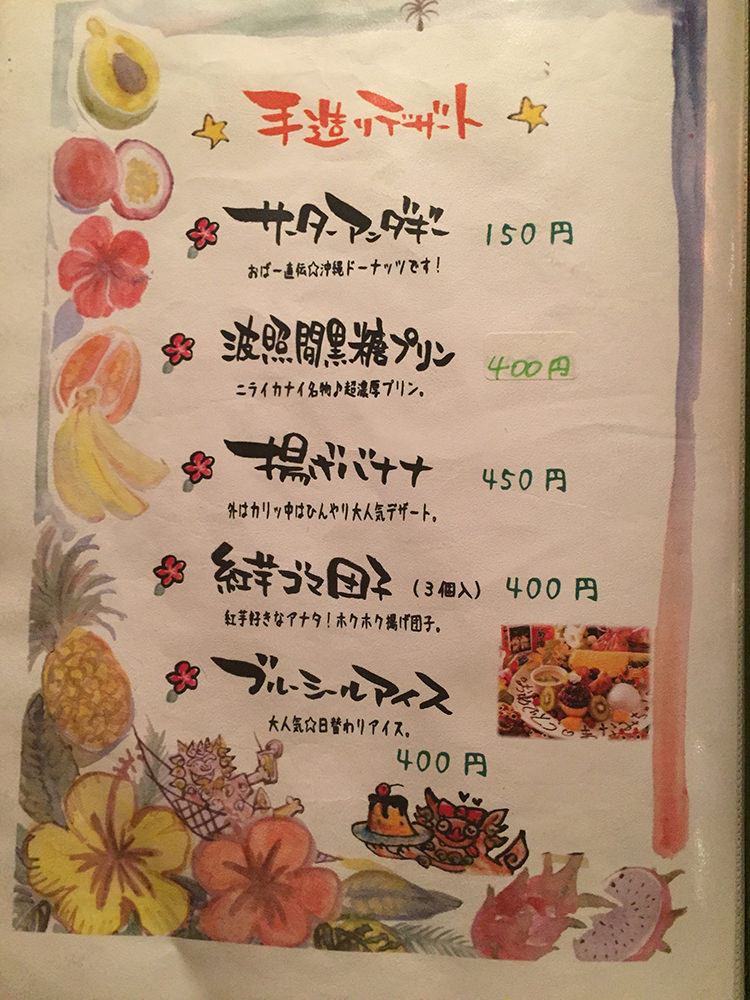 手造りデザート
サーターアンダギー 150円
おばー直伝☆沖縄ドーナッツです!
波照間黒糖プリン 400円
ニライカナイ名物♪超濃厚プリン。
揚げバナナ 450円
外はカリッ中はひんやり大人気デザート。
紅芋ゴマ団子(3個入) 400円
紅芋好きなアナタ!ホクホク揚げ団子。
ブルーシールアイス
大人気☆日替わりアイス。
400円